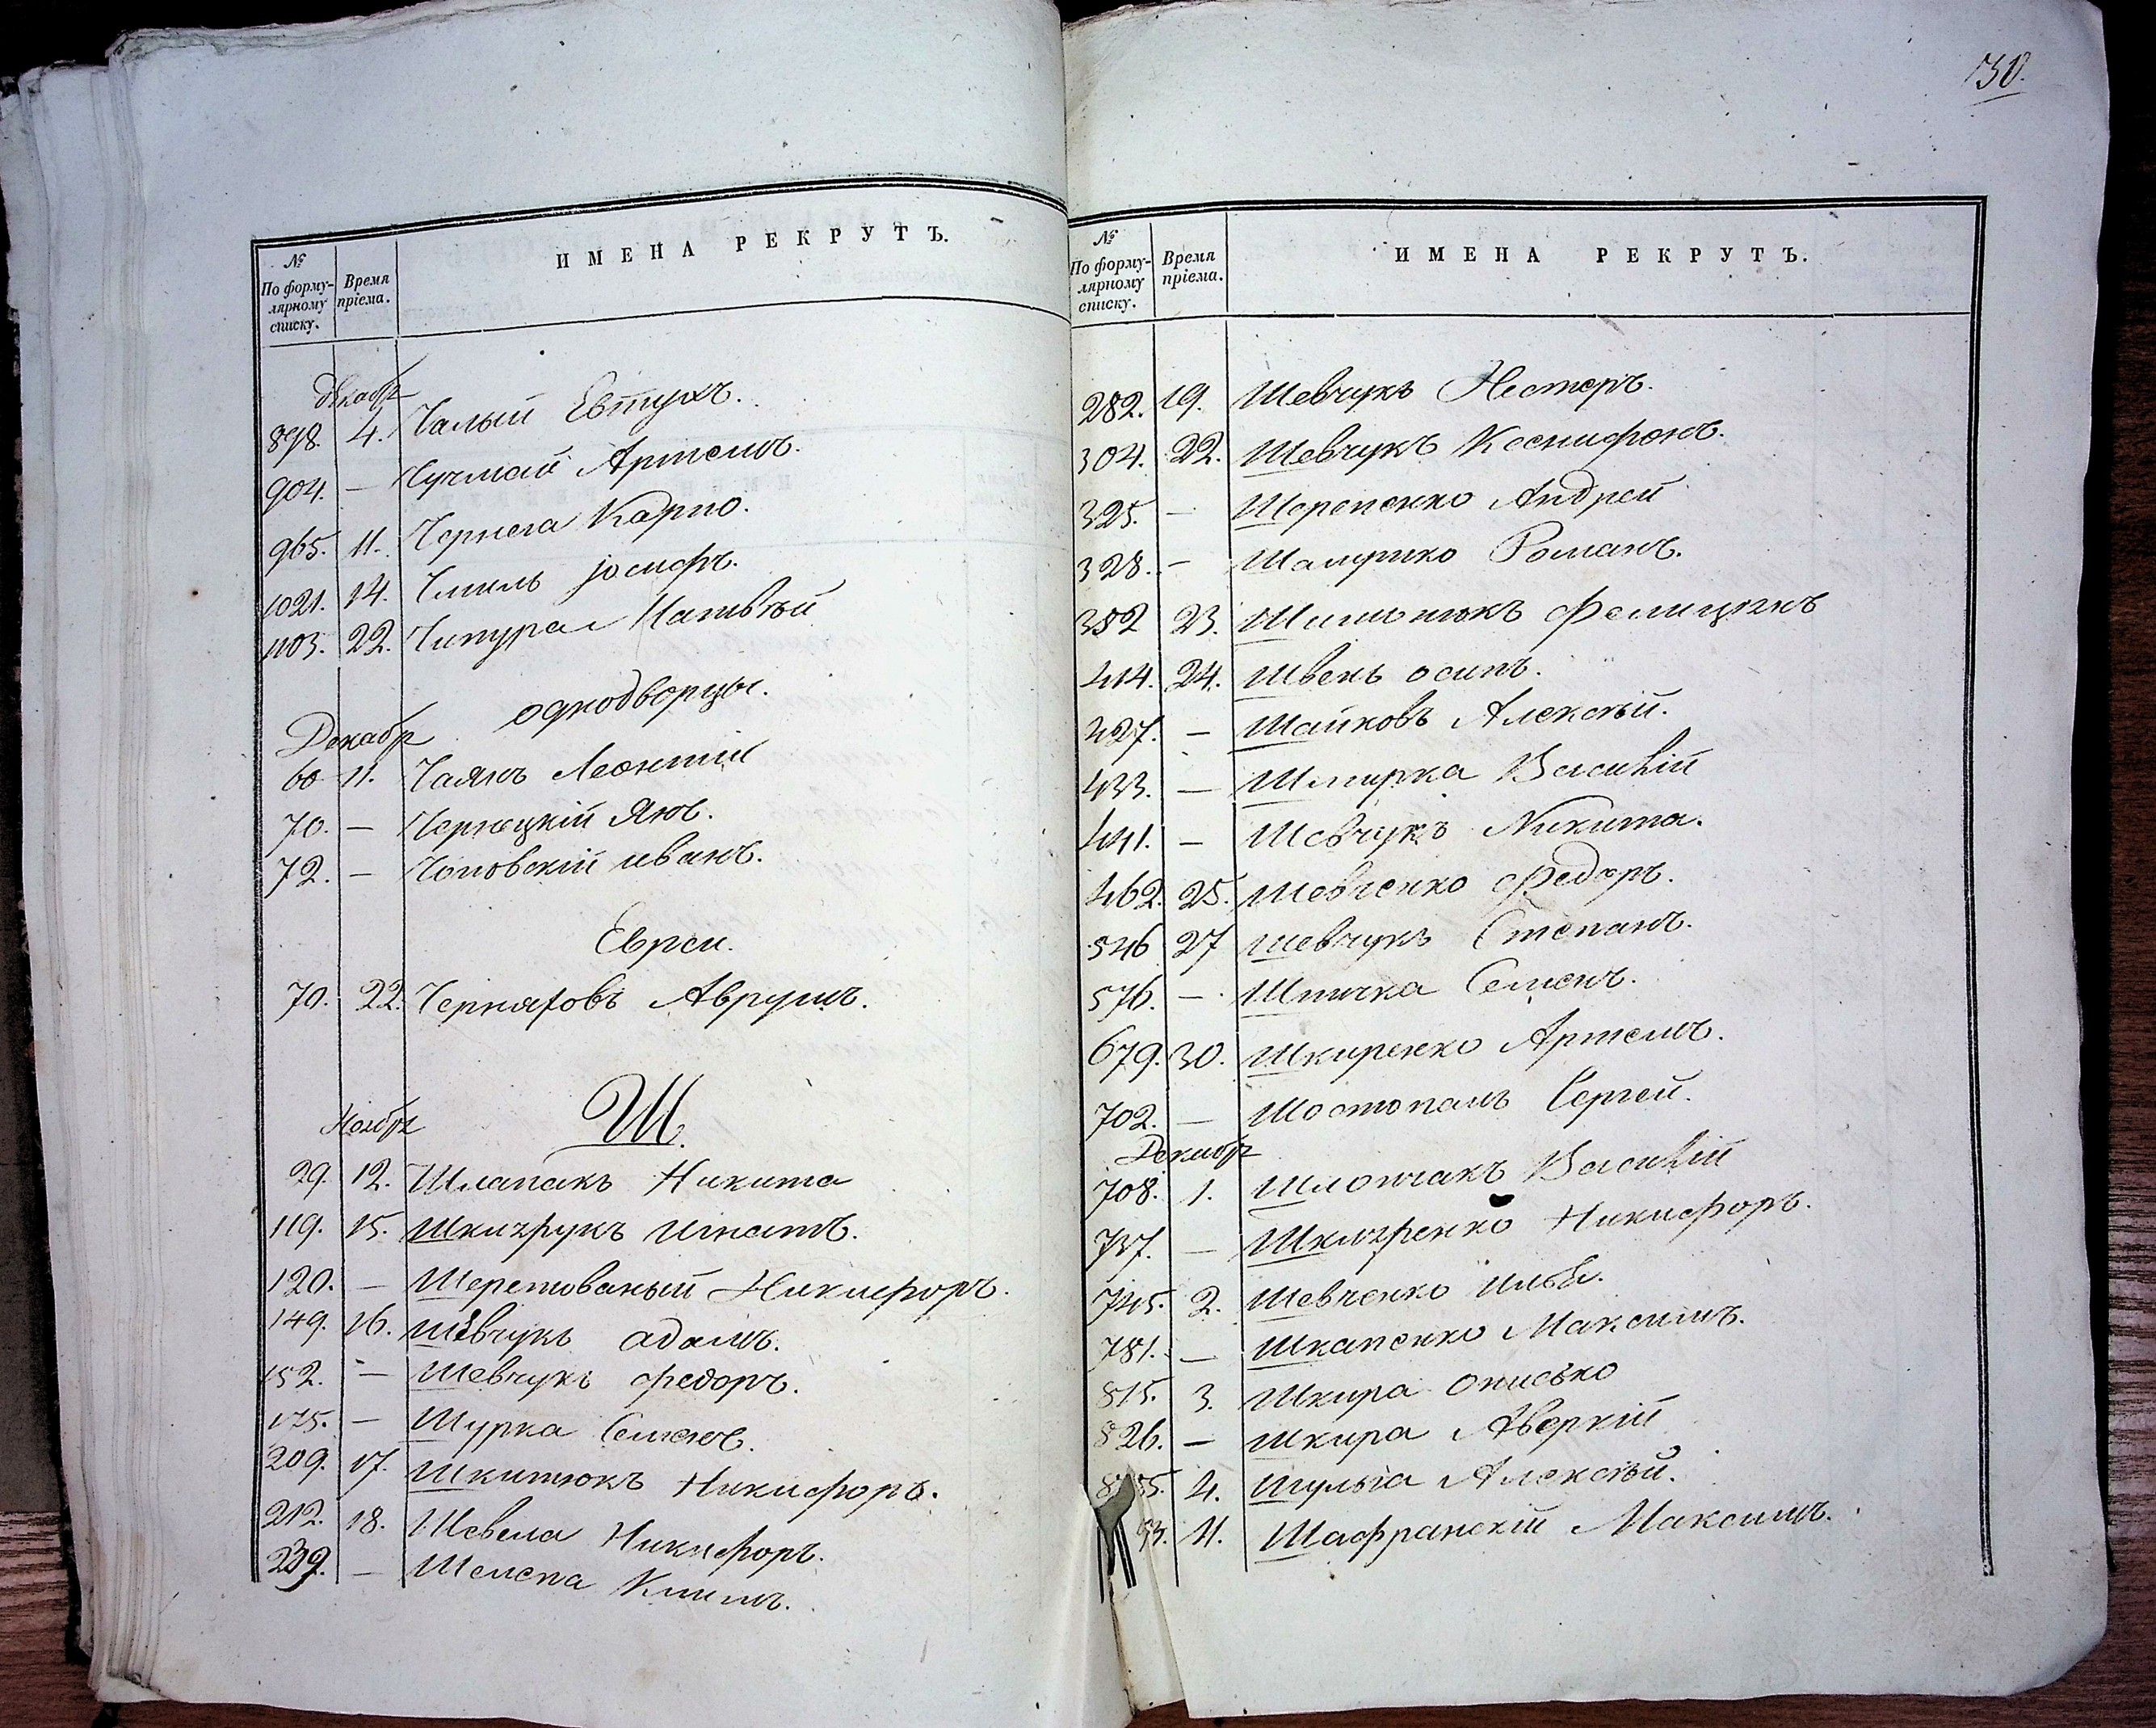 № По формулярному списку. Время пріема. ИМЕНА РЕКРУТЪ.
декабр
898. 4. Чалый Евтухъ.
904. — Чучмай Артемъ.
965. 11. Чернега Карпо.
1021. 14. Чмиль Іосифъ.
1103. 22. Чипура Матвѣй
однодворцы.
Декабр
60 11. Чаянъ Леонтій
70. — Чернецкій Янъ.
72. — Чоповскій иванъ.
Евреи.
70. 22. Черняховъ Аврумъ.
Ш.
Ноябр
29. 12. Шлапакъ Никита
119. 15. Шкигрукъ Игнатъ.
120. — Шеретованый Никифоръ.
149. 16. шевчукъ адамъ.
152. — Шевчукъ федоръ.
175. — Шурка Семенъ.
209. 17. Шкитюкъ Никифоръ.
212. 18. Шевела Никифоръ.
239. — Шелепа Климъ.
130.
№ По формулярному списку. Время пріема. ИМЕНА РЕКРУТЪ.
282. 19. Шевчукъ Нестеръ.
304. 22. Шевчукъ Ксенифонъ.
325. — Шерепенко Андрей
328. — Романъ.
352 23.
414. 24. Швець осипъ.
427. — Шайковъ Алексѣй.
433. — Шмирка Василій
441. — Шевчукъ Никита.
462. 25. Шевченко Федоръ.
546 27 шевчукъ Степанъ.
576. — Шпичка Семенъ.
679. 30. Шкиренко Артемъ.
702. — Шостопалъ Сергей.
Декабр
708. 1. Шлопчакъ Василій
737. — Никифоръ.
745. 2. Шевченко Илья.
781. — Шкапенко Максимъ.
815. 3. Шкира Онисько
826. — шкира Аверкій
4. Шульга Алексѣй.
11. Шафранскій Максимъ.